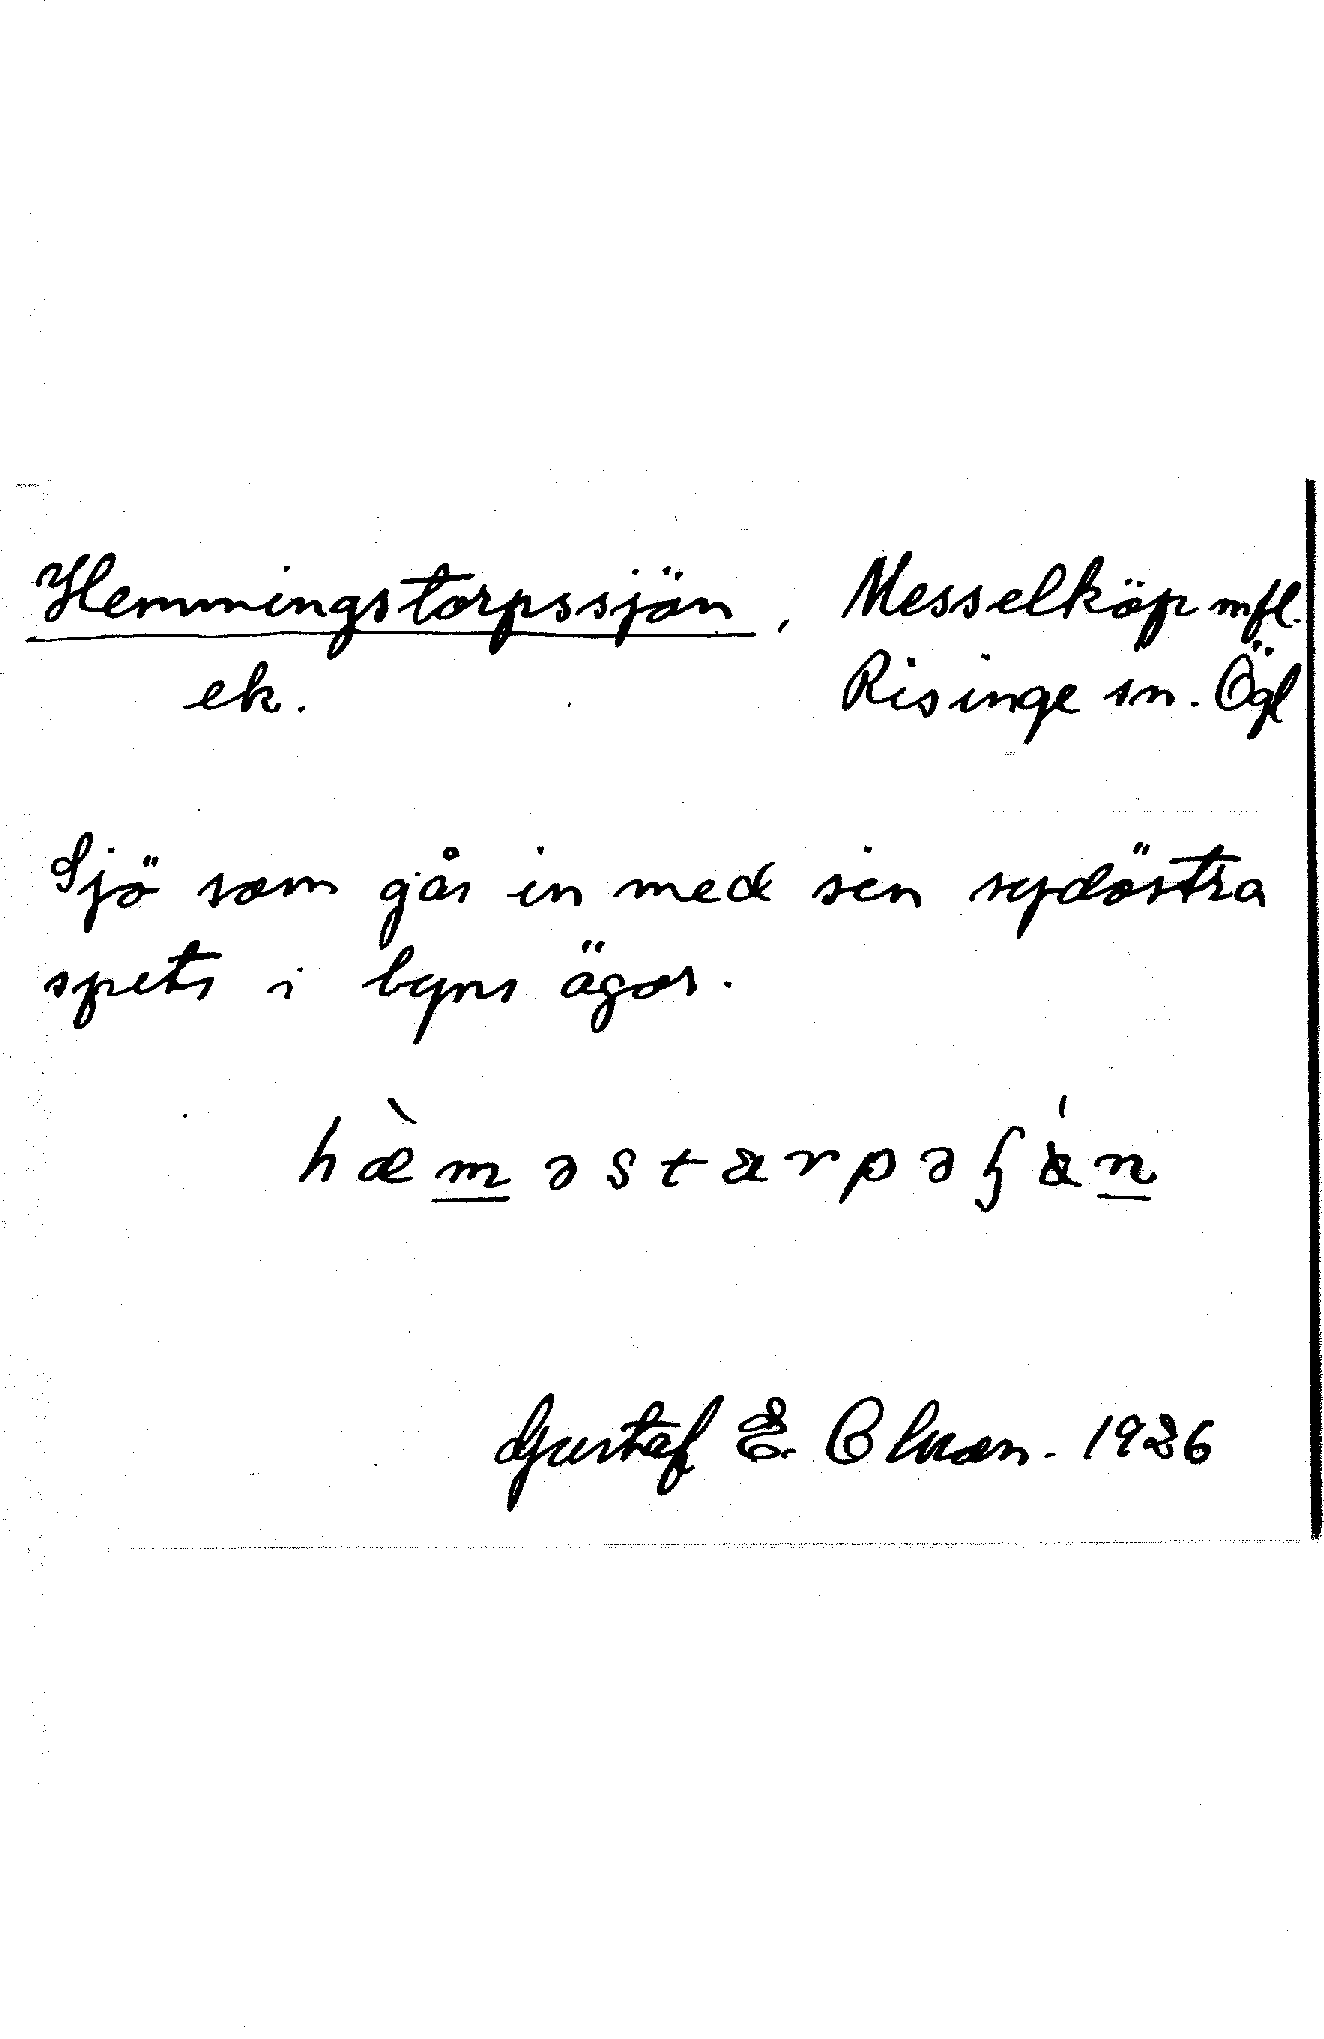 Hemmingstorpssjön, Messelköp mfl.
ek. Risinge sn. Ögl
Sjö som går in med sin sydöstra
spets i byns ägor.
Gustaf E. 1926